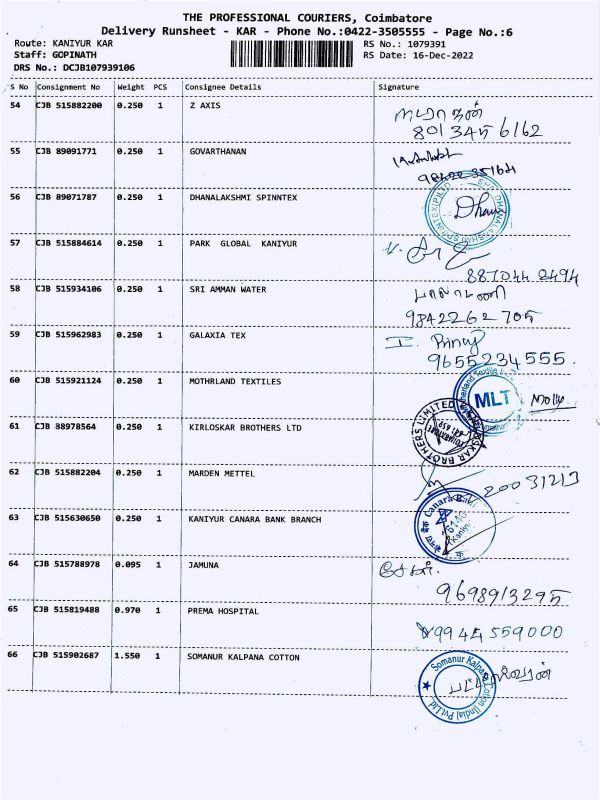 THE PROFESSIONAL COURIERS, Coimbatore
Delivery Runsheet - KAR - Phone No.:0422-3505555 - Page No.:6
Route: KANIYUR KAR RS No.: 1079391
Staff: GOPINATH RS Date: 16-Dec-2022
DRS No.: DCJB107939106
S No Consignment No Weight PCS Consignee Details Signature
54 CJB 515882200 0.250 1 Z AXIS
801 345 6162
55 CJB 89091771 0.250 1 GOVARTHANAN
56 CJB 89071787 0.250 1 DHANALAKSHMI SPINNTEX
57 CJB 515884614 0.250 1 PARK GLOBAL KANIYUR
887044 2494
58 CJB 515934106 0.250 1 SRI AMMAN WATER
9842262705
59 CJB 515962983 0.250 1 GALAXIA TEX
9655234555.
60 CJB 515921124 0.250 1 MOTHRLAND TEXTILES MLT
61 CJB 88978564 0.250 1 KIRLOSKAR BROTHERS LTD
BROTHERS LIMITED
62 CJB 515882204 0.250 1 MARDEN METTEL
20031213
63 CJB 515630650 0.250 1 KANIYUR CANARA BANK BRANCH
Canara Bank
64 CJB 515788978 0.095 1 JAMUNA
9698913295
65 CJB 515819488 0.970 1 PREMA HOSPITAL
9944559000
66 CJB 515902687 1.550 1 SOMANUR KALPANA COTTON
Somanur Kalpana Cotton (India) Pvt Ltd.